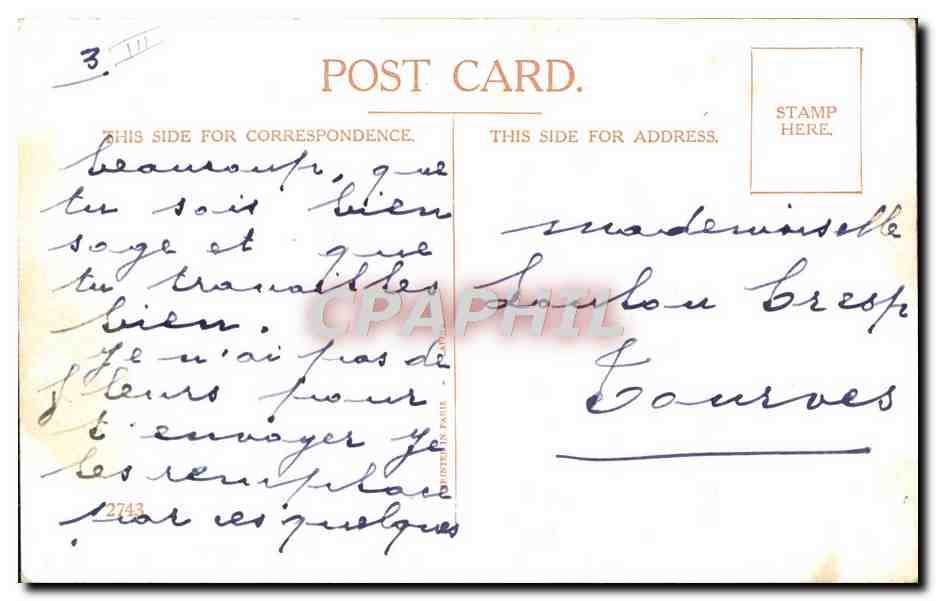 3. III
POST CARD.
STAMP
HERE.
THIS SIDE FOR CORRESPONDENCE.
THIS SIDE FOR ADDRESS.
beaucoup, que
tu sois bien
sage et que
tu travailles
bien.
Je n'ai pas de
fleurs pour
t'envoyer je
les remplace
par ces quelques
2743
PRINTED IN PARIS
Mademoiselle
Loulou Cresp
Tourves
CPAPHIL